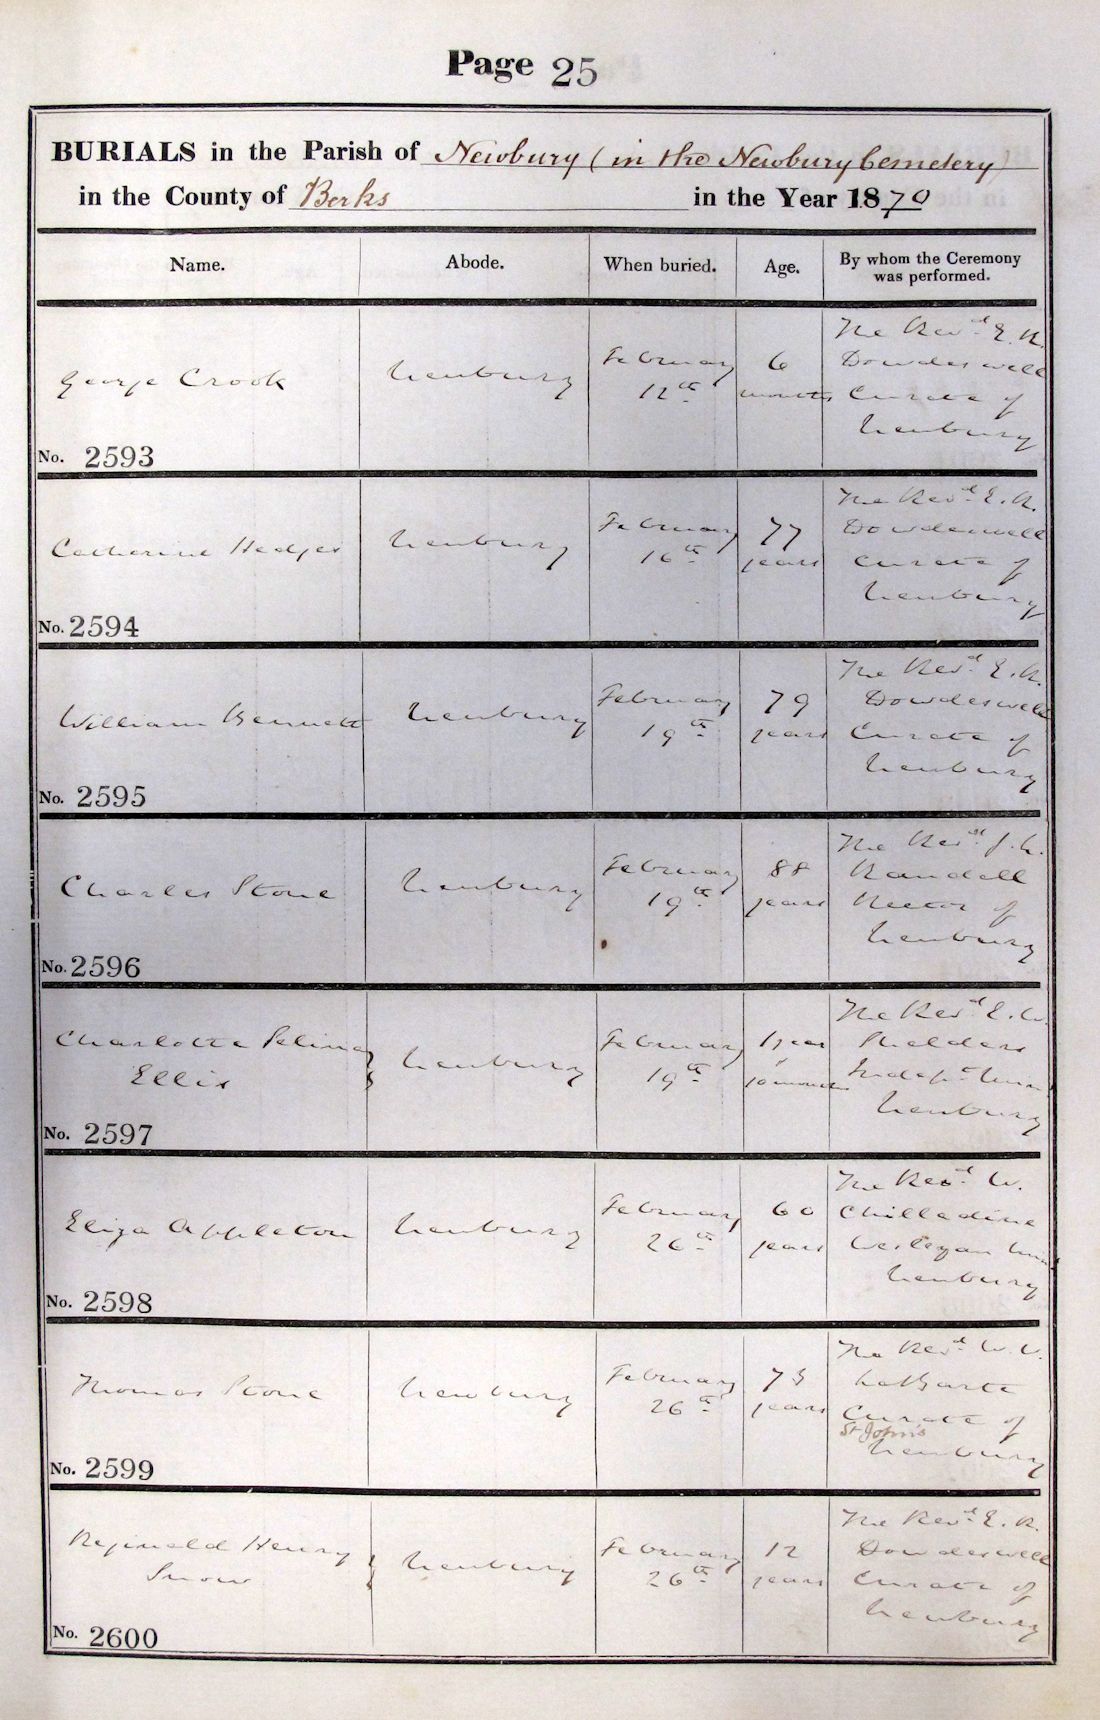 Page 25
BURIALS in the Parish of Newbury (in the Newbury Cemetery)
in the County of Berks in the Year 1870
Name. Abode. When buried. Age. By whom the Ceremony was performed.
George Crook
No. 2593
Newbury
February
12th
6
months
The Revd E. R.
Dowdeswell
Curate of
Newbury
Catherine Hedges
No. 2594
Newbury
February
16th
77
years
The Revd E. R.
Dowdeswell
Curate of
Newbury
William Bennett
No. 2595
Newbury
February
19th
79
years
The Revd E. R.
Dowdeswell
Curate of
Newbury
Charles Stone
No. 2596
Newbury
February
19th
88
years
The Revd J. L.
Randall
Rector of
Newbury
Charlotte Selina
Ellis
No. 2597
Newbury
February
19th
1 year
10 months
The Revd E. W.
Shelders
Indept Min
Newbury
Eliza Appleton
No. 2598
Newbury
February
26th
60
years
The Revd W.
Chilladine
Wesleyan Min
Newbury
Thomas Stone
No. 2599
Newbury
February
26th
73
years
The Revd W. V.
LaBarte
Curate of
St John's
Newbury
Reginald Henry
Snow
No. 2600
Newbury
February
26th
12
years
The Revd E. R.
Dowdeswell
Curate of
Newbury